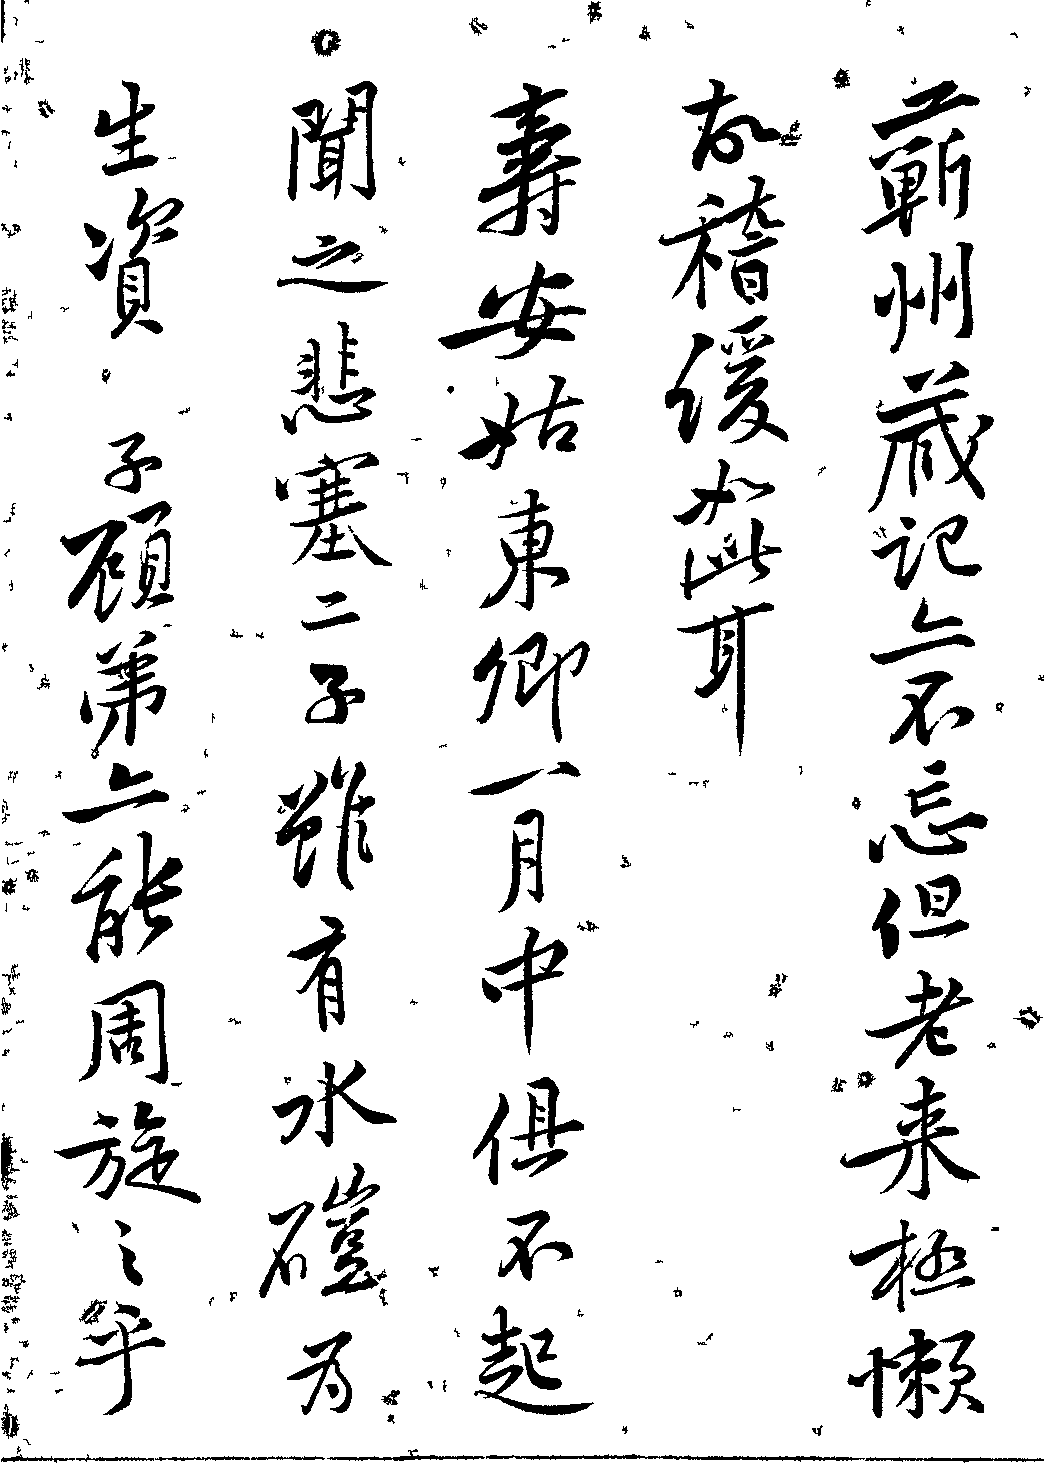 蘄州藏記亦不忘但老来極懶
故稽緩如此耳
壽安姑東卿一月中俱不起
聞之悲塞二子雖有水磑為
生資子顧弟亦能周旋之乎